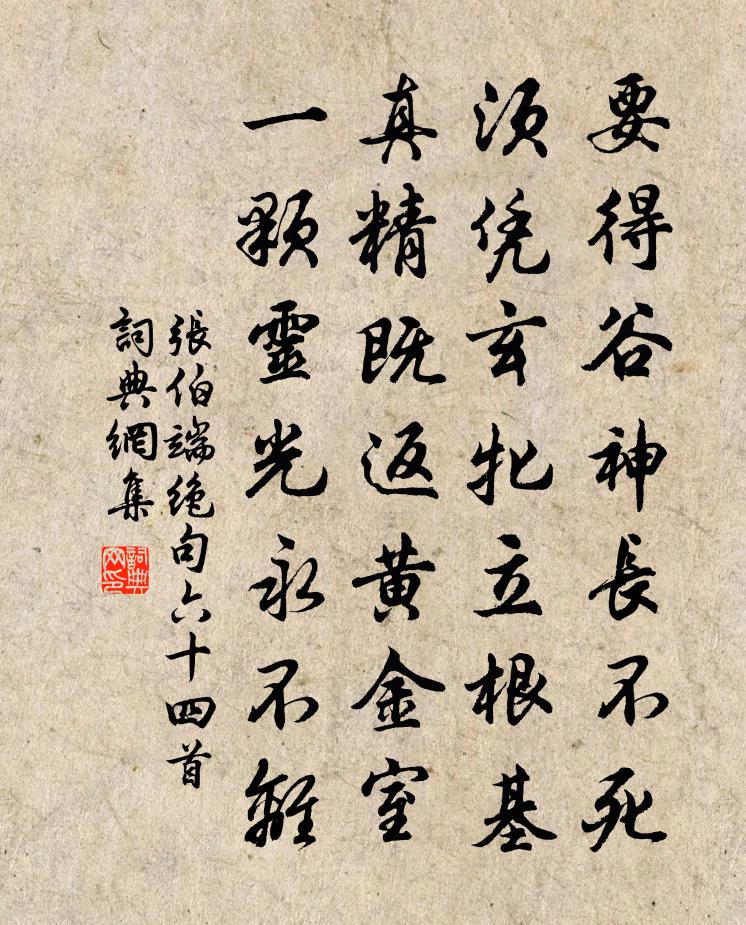 要得谷神長不死
須凭玄牝立根基
真精既返黄金室
一顆靈光永不離
張伯端绝句六十四首
詞典網集
詞典网印